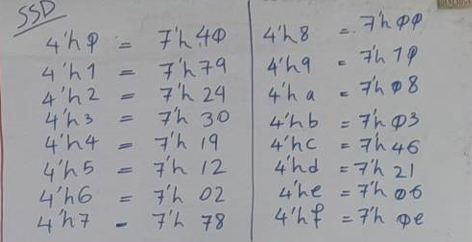 SSD
4'h0 = 7'h 40
4'h1 = 7'h79
4'h2 = 7'h 24
4'h3 = 7'h 30
4'h4 = 7'h 19
4'h5 = 7'h 12
4'h6 = 7'h 02
4'h7 - 7'h 78
4'h8 = 7'h 00
4'h9 = 7'h 10
4'h a = 7'h 08
4'h b = 7'h 03
4'hc = 7'h 46
4'hd = 7'h 21
4'he = 7'h 06
4'h f = 7'h 0e